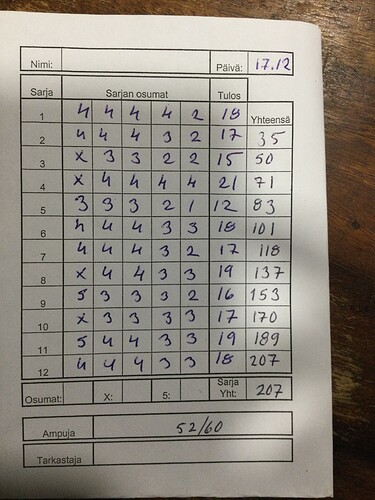 Nimi: Päivä: 17.12
Sarja Sarjan osumat Tulos
Yhteensä
1 4 4 4 4 2 18
2 4 4 4 3 2 17 35
3 x 3 3 2 2 15 50
4 x 4 4 4 4 21 71
5 3 3 3 2 1 12 83
6 4 4 4 3 3 18 101
7 4 4 4 3 2 17 118
8 x 4 4 3 3 19 137
9 5 3 3 3 2 16 153
10 x 3 3 3 3 17 170
11 5 4 4 3 3 19 189
12 4 4 4 3 3 18 207
Osumat: X: 5: Sarja Yht: 207
Ampuja 52/60
Tarkastaja